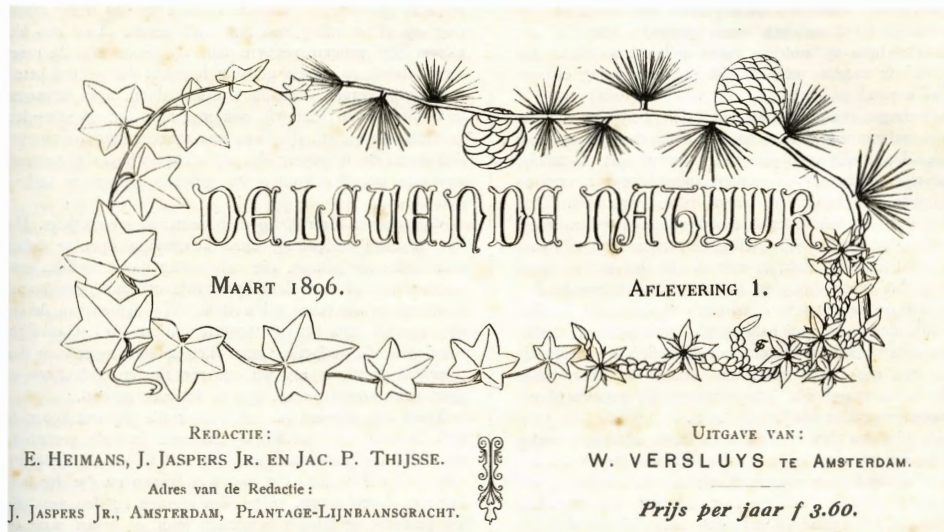 DE LEVENDE NATUUR
MAART 1896.
AFLEVERING 1.
REDACTIE:
E. HEIMANS, J. JASPERS JR. EN JAC. P. THIJSSE.
Adres van de Redactie:
J. JASPERS JR., AMSTERDAM, PLANTAGE-LIJNBAANSGRACHT.
UITGAVE VAN:
W. VERSLUYS TE AMSTERDAM.
Prijs per jaar f 3.60.